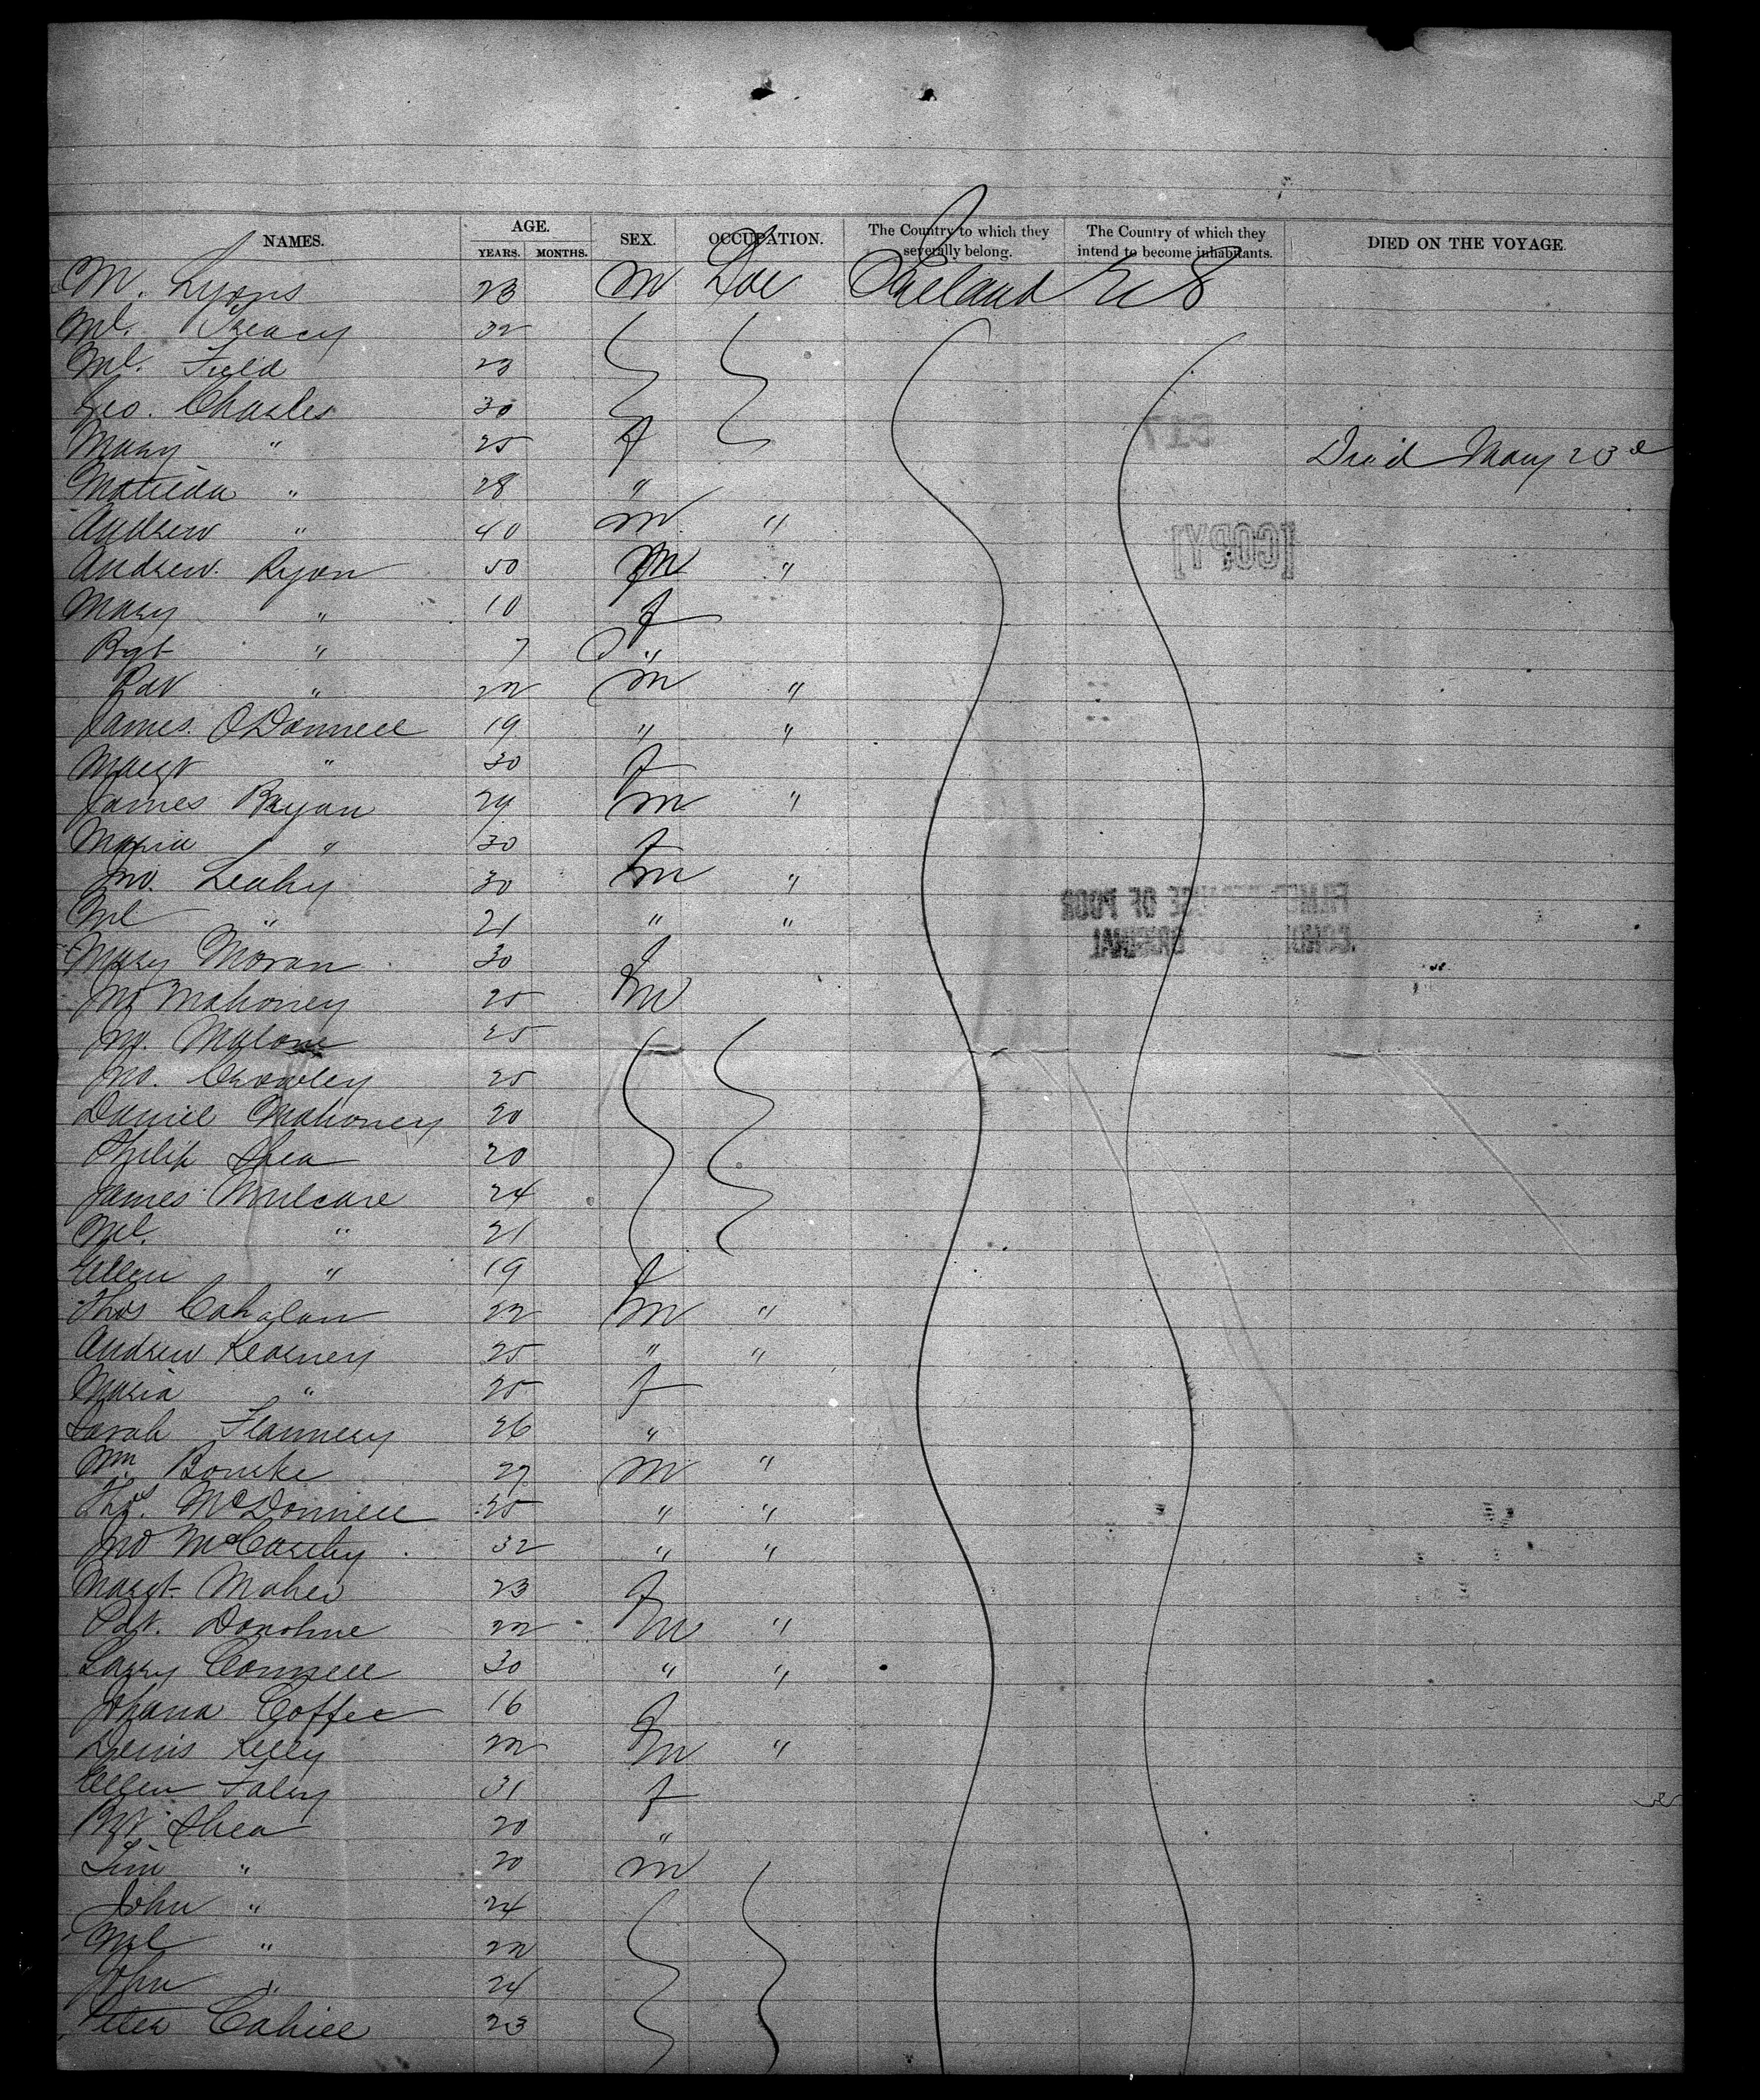 NAMES. AGE. YEARS. MONTHS. SEX. OCCUPATION. The Country to which they severally belong. The Country of which they intend to become inhabitants. DIED ON THE VOYAGE.
M. Lyons 23 M Ireland U S
Ml. Treacy 32
Ml. Field 23
Geo. Charles 30
Mary " 25 f Died May 23d
Matilda " 28 "
Andrew " 40 M "
Andrew Ryan 50 M "
Mary " 10 f
Bgt " 7 "
Pat " 22 M "
James O'Donnell 19 " "
Margt " 30 f
James Bryan 29 M "
Maria " 30 f
Jno. Leahy 30 M "
Ml " 21 " "
Mary Moran 30 f
Jno Mahoney 25 M
Jno. Malone 25
Jno. Crowley 25
Daniel Mahoney 20
Philip Shea 20
James Mulcare 24
Ml. " 21
Ellen " 19 f
Thos Cahalan 22 M "
Andrew Kearney 25 " "
Maria " 25 f
Sarah Flannery 26 "
Wm Bourke 27 M "
Thos. McDonnell 25 " "
Jno McCarthy 32 " "
Margt Maher 23 f
Pat. Donohue 22 M "
Larry Connell 30 " "
Johana Coffee 16 f
Denis Kelly 22 M "
Ellen Foley 31 f
Bgt Shea 20 "
Tim " 20 M
John " 24
Ml " 22
John " 24
Peter Cahill 23
517
[COPY]